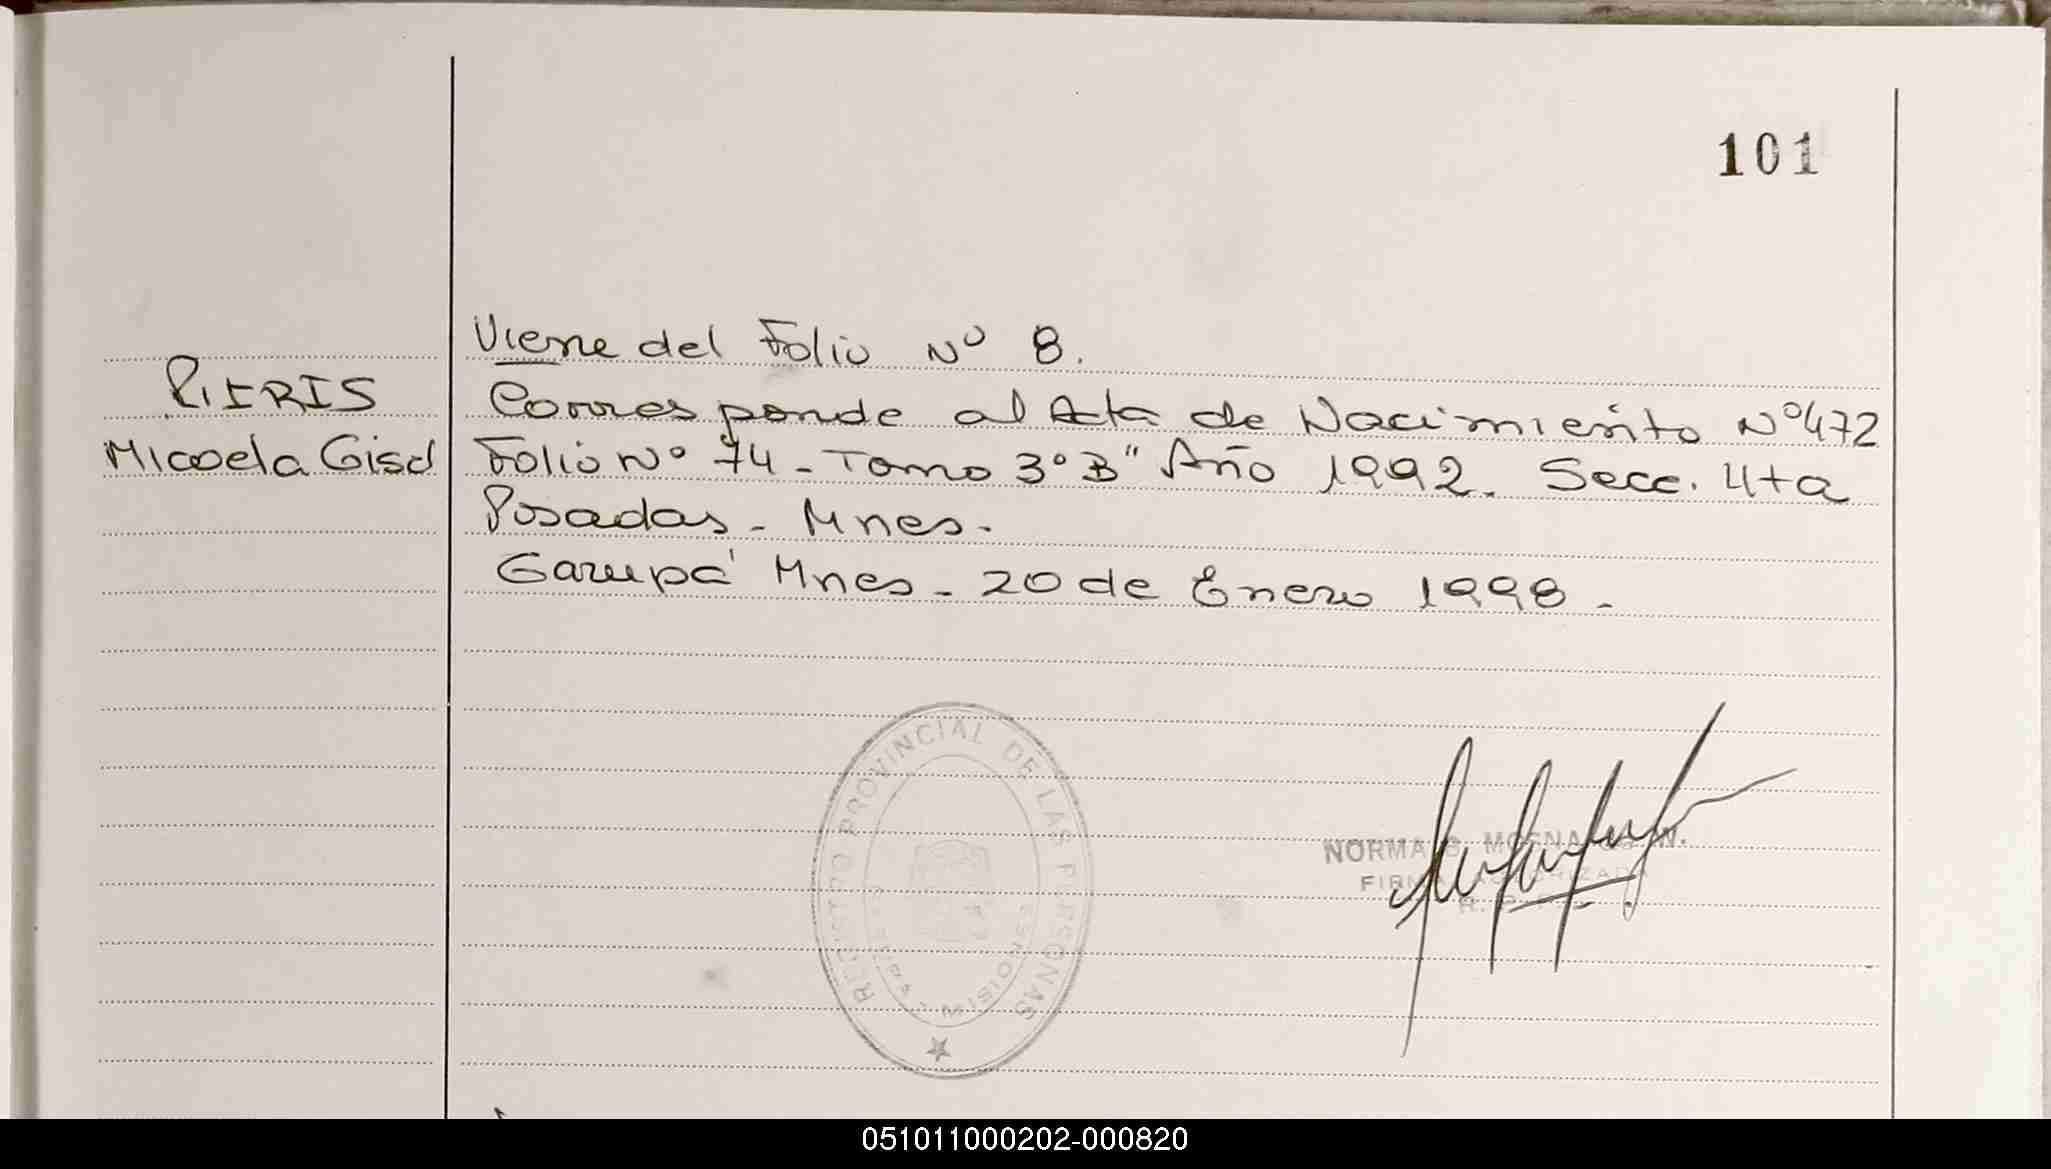 101
Viene del Folio Nº 8.
PIERIS
Corresponde al Acta de Nacimiento Nº 472
Micaela Gisel
Folio Nº 74 - Tomo 3º B" Año 1992. Secc. 4ta
Posadas - Mnes.
Garupá Mnes - 20 de Enero 1998 -
REGISTRO PROVINCIAL DE LAS PERSONAS
MISIONES
NORMA
FIRMA AUTORIZADA
051011000202-000820